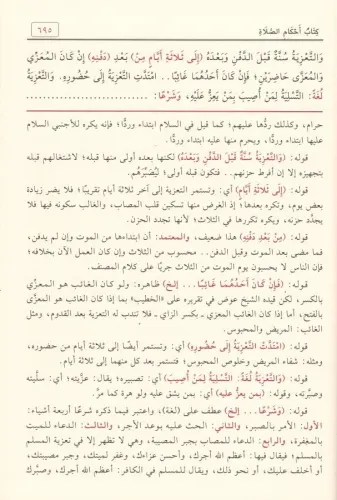 كِتَابُ أَحْكَامِ الصَّلَاةِ
٦٩٥
وَالتَّعْزِيَةُ سُنَّةٌ قَبْلَ الدَّفْنِ وَبَعْدَهُ (إِلَى ثَلَاثَةِ أَيَّامٍ مِنْ) بَعْدِ (دَفْنِهِ) إِنْ كَانَ الْمُعَزِّي
وَالْمُعَزَّى حَاضِرَيْنِ؛ فَإِنْ كَانَ أَحَدُهُمَا غَائِبًا... امْتَدَّتِ التَّعْزِيَةُ إِلَى حُضُورِهِ. وَالتَّعْزِيَةُ
لُغَةً: التَّسْلِيَةُ لِمَنْ أُصِيبَ بِمَنْ يَعِزُّ عَلَيْهِ، وَشَرْعًا:
حرام، وكذلك ردُّها عليهم؛ كما قيل في السلام ابتداء وردًّا؛ فإنه يكره للأجنبي السلام
عليها ابتداء وردًّا، ويحرم منها عليه ابتداء وردًّا.
قوله: (وَالتَّعْزِيَةُ سُنَّةٌ قَبْلَ الدَّفْنِ وَبَعْدَهُ) لكنها بعده أولى منها قبله؛ لاشتغالهم قبله
بتجهيزه إلا إن أفرط حزنهم.. فتكون قبله أولى؛ ليُصَبِّرَهُم.
قوله: (إِلَى ثَلَاثَةِ أَيَّامٍ) أي: وتستمر التعزية إلى آخر ثلاثة أيام تقريبًا؛ فلا يضر زيادة
بعض يوم، وتكره بعدها؛ إذ الغرض منها تسكين قلب المصاب، والغالب سكونه فيها فلا
يجدَّد حزنه، ويكره تكررها في الثلاث؛ لأنها تجدد الحزن.
قوله: (مِنْ بَعْدِ دَفْنِهِ) هذا ضعيف، والمعتمد: أن ابتداءها من الموت وإن لم يدفن،
فما مضى بعد الموت وقبل الدفن.. محسوب من الثلاث وإن كان العمل الآن بخلافه؛
فإن الناس لا يحسبون يوم الموت من الثلاث جريًا على كلام المصنف.
قوله: (فَإِنْ كَانَ أَحَدُهُمَا غَائِبًا... إلخ) ظاهره: ولو كان الغائب هو المعزِّي
بالكسر، لكن قيده الشيخ عوض في تقريره على «الخطيب» بما إذا كان الغائب هو المعزَّى
بالفتح، أما إذا كان الغائب المعزي ـ بكسر الزاي ـ فلا تندب له التعزية بعد القدوم، ومثل
الغائب: المريض والمحبوس.
قوله: (امْتَدَّتِ التَّعْزِيَةُ إِلَى حُضُورِهِ) أي: وتستمر أيضًا إلى ثلاثة أيام من حضوره،
ومثله: شفاء المريض وخلوص المحبوس؛ فتستمر بعد كل منهما إلى ثلاثة أيام.
قوله: (وَالتَّعْزِيَةُ لُغَةً: التَّسْلِيَةُ لِمَنْ أُصِيبَ) أي: تصبيره؛ يقال: عزَّيته؛ أي: سلَّيته
وصبَّرته، وقوله: (بمن يعزُّ عليه) أي: بمن يشق عليه ولو هرة كما مرَّ.
قوله: (وَشَرْعًا... إلخ) عطف على (لغة)، واعتبر فيما ذكره شرعًا أربعة أشياء:
الأول: الأمر بالصبر، والثاني: الحث عليه بوعد الأجر، والثالث: الدعاء للميت
بالمغفرة، والرابع: الدعاء للمصاب بجبر المصيبة، وهي لا تظهر إلا في تعزية المسلم
بالمسلم؛ فيقال فيها: أعظم الله أجرك، وأحسن عزاءك، وغفر لميتك، وجبر مصيبتك،
أو أخلف عليك، أو نحو ذلك، ويقال للمسلم في الكافر: أعظم الله أجرك، وصبَّرك